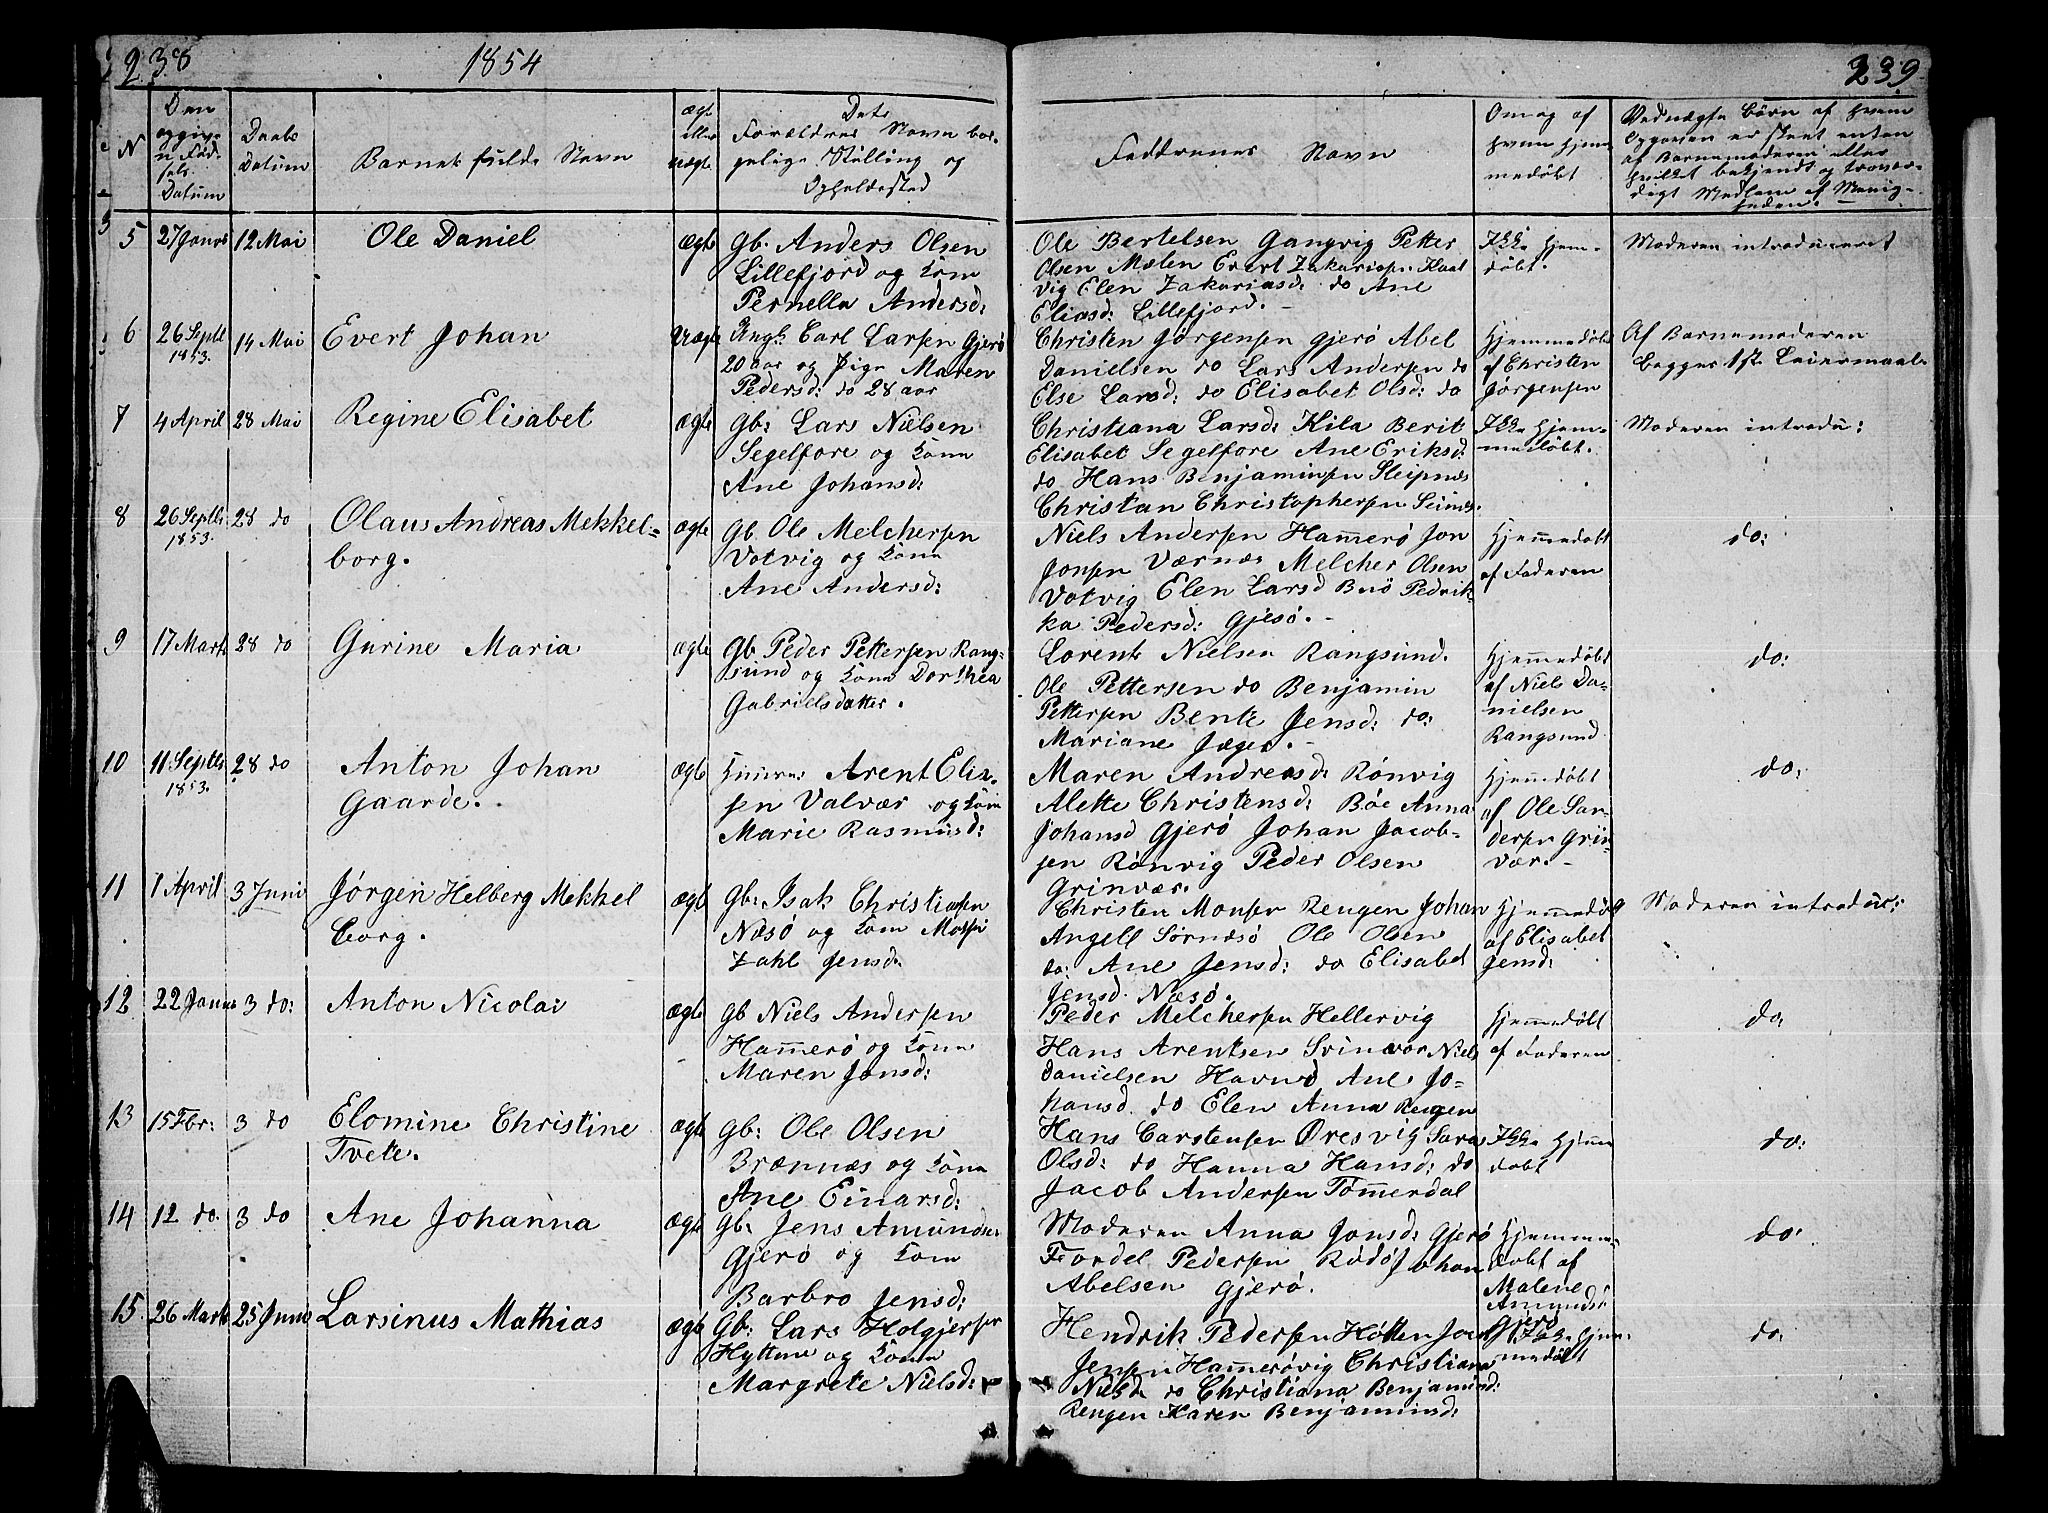 238
1854
239
N
Den
opgive
n Fød-
sels
Datum
Daabs
Datum
Barnets fulde Navn
ægte
eller
uægte
Dets
Forældres Navn bor-
gerlige Stilling og
Opholdssted
Faddrenes Navn
Om og af
hvem hjem
medøbt
Ved uægte Børn af hvem
Opgaven er skeet enten
af Barnemoderen eller
hvilket bekjendt og troevær-
digt Medlem af Menig-
heden.
5 27 Januar 12 Mai Ole Daniel ægte
Gb. Anders Olsen
Lillefjord og Kone
Pernella Andersd:
Ole Bertelsen Gangvig Petter
Olsen Mælen Evert Zakariasen Kaat
vig Elen Zakariasd: do Ane
Eliasd: Lillefjord.
Ikke hjem-
døbt.
Moderen introduceret
6 26 Septb 1853. 14 Mai Evert Johan Uægte
Ungk Carl Larsen Gjerø
20 aar og Pige Maren
Pedersd: do 28 aar
Christen Jørgensen Gjerø Abel
Danielsen do Lars Andersen do
Else Larsd: do Elisabet Olsd: do
Hjemmedøbt
af Christen
Jørgensen
Af Barnemoderen
Begges 1ste Leiermaal
7 4 April 28 Mai Regine Elisabet ægte
Gb: Lars Nielsen
Segelfore og Kone
Ane Johansd:
Christiana Larsd: Kila Berit
Elisabet Segelfore Ane Eriksd:
do Hans Benjaminsen Sleipnes
Christan Christophersen Seines.
Ikke hjem-
medøbt.
Moderen introdu:
8 26 Septb 1853. 28 do Olaus Andreas Mekkel-
borg. ægte
Gb. Ole Melchersen
Votvig og Kone
Ane Andersd:
Niels Andersen Hammerø Jon
Jonsen Værnæs Melcher Olsen
Votvig Elen Larsd Buø Pedrik-
ka Pedersd: Gjesø.
Hjemmedøbt
af Faderen
do:
9 17 Marts 28 do Gurine Maria ægte
Gb Peder Pettersen Rang-
sund og Kone Dorthea
Gabrielsdatter.
Lorents Nielsen Rangsund.
Ole Pettersen do Benjamin
Pettersen Bente Jensd: do:
Mariane Jæger.
Hjemmedøbt
af Niels Da-
nielsen
Rangsund
do:
10 11 Septb 1853. 28 do Anton Johan
Gaarde. ægte
Arent Elia-
sen Valvær og Kone
Marie Rasmusd:
Maren Andreasd: Rønvig
Alette Christensd: Bøe Anna
Johansd Gjerø Johan Jacob-
sen Rønvig Peder Olsen
Grinvær.
Hjemmedøbt
af Ole San-
dersen Grin-
vær.
do:
11 1 April 3 Juni Jørgen Helberg Mekkel
borg. ægte
Gb: Isak Christiansen
Næsø og Kone
Zahl Jensd:
Christen Monsen Rengen Johan
Angell Sørnæsø Ole Olsen
do: Ane Jensd: do Elisabet
Jensd. Næsø.
Hjemmedøb
af Elisabet
Jensd:
Moderen introduc:
12 22 Januar 3 do: Anton Nicolai ægte
Gb Niels Andersen
Hammerø og Kone
Maren Jonsd:
Peder Melchersen Hellervig
Hans Arentsen Svinvær Niels
Danielsen Havnø Ane Jo-
hansd. do Elen Anna Rengen
Hjemmedøbt
af Faderen
do:
13 15 Fbr: 3 do Elomine Christine
Tvete. ægte
Gb: Ole Olsen
Brænnæs og Kone
Ane Einarsd:
Hans Carstensen Øresvig Sara
Olsd: do Hanna Hansd: do
Jacob Andersen Tømmerdal
Ikke hjem
døbt
do:
14 12 do. 3 do Ane Johanna ægte
Gb: Jens Amundsen
Gjerø og Kone
Barbro Jensd:
Moderen Anna Jonsd: Gjerø
Fordel Pedersen Rødø Johan
Abelsen Gjerø.
Hjemme-
døbt af
Malene
Amundsd:
Gjerø
do:
15. 26 Marts 25 Juni Larsinus Mathias ægte
Gb: Lars Holgjersen
Hyttene og Kone
Margrete Nielsd:
Hendrik Pedersen Høtten Jon
Jensen Hammerøvig Christiana
Nielsd do Christiana Benjamind:
Rengen Karen Benjaminsd:
Ikke hjem-
medøbt
do: